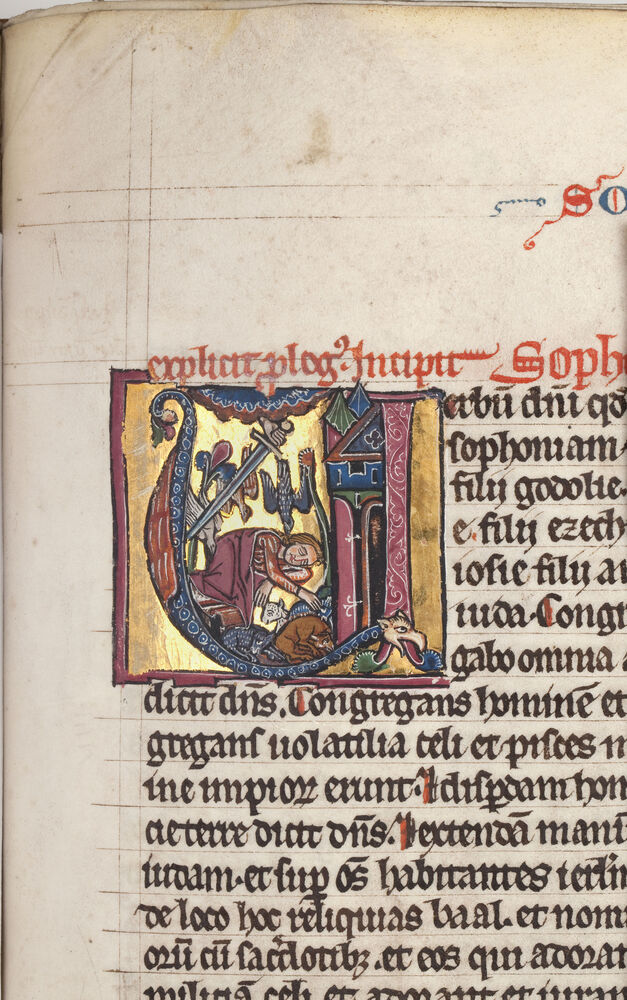 SO
explicit plog⁹. Incipit Soph
Verbū dn̄i qd̄
sophoniam
filii godolie.
e. filii ezech
iosie filii a
iuda. Congr
gabo omnia a
dicit dn̄s. Congregans hominē et
gregans uolatilia celi et pisces m
ine impioꝝ erunt. Et disꝑdam hom
cie terre dicit dn̄s. Et extendā manū
iudam. et suꝑ os̄ habitantes ierlm̄
de loco hoc reliquias baal. et nom
orū cū sac̄dotibꝫ. et eos qui adorat
militiā celi et adorant et iuran